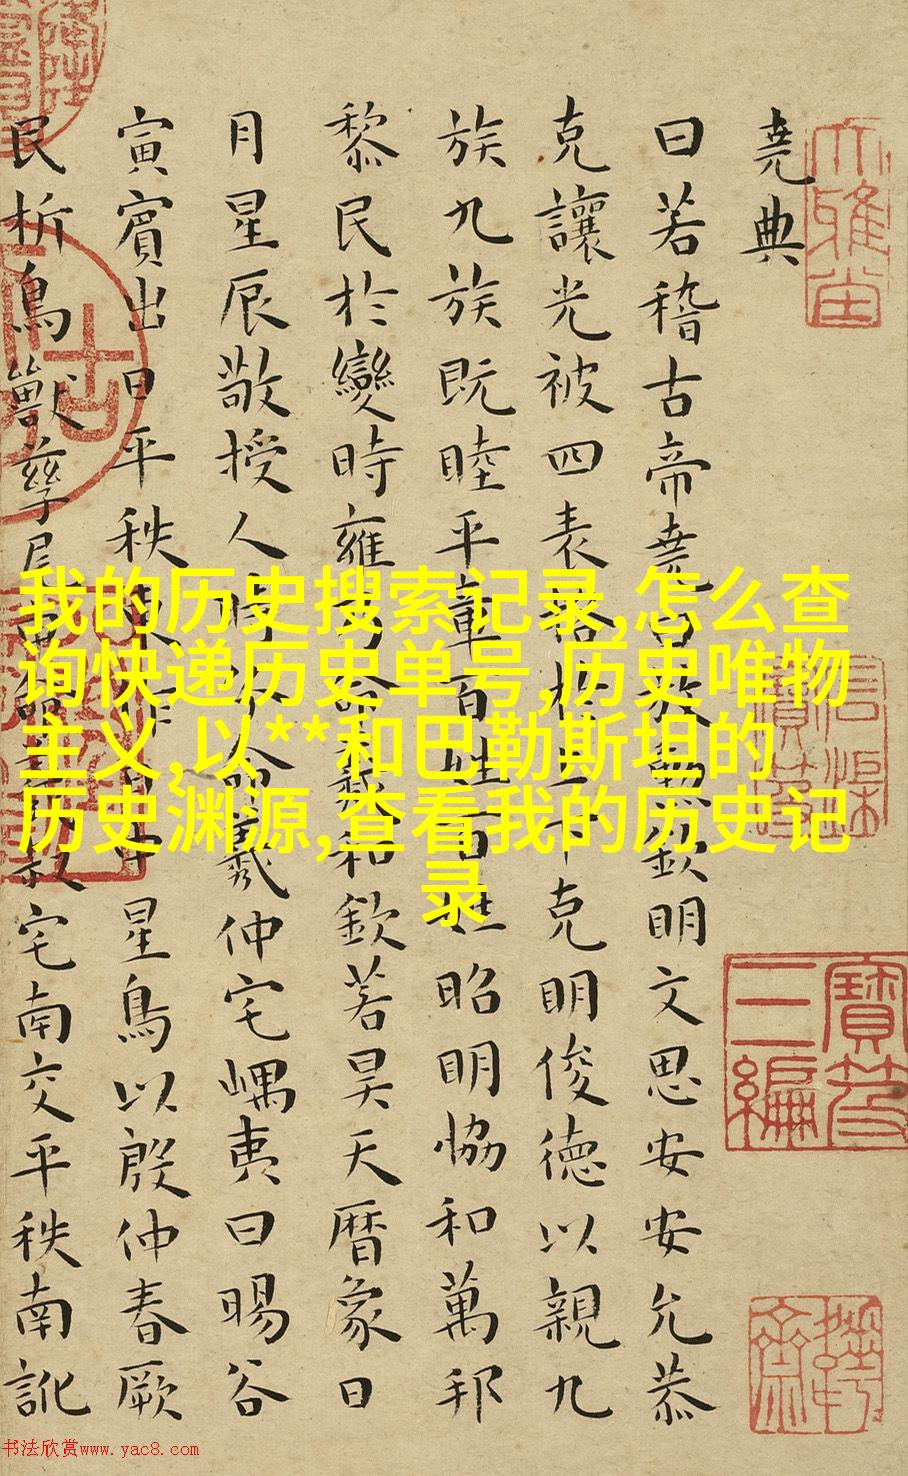 堯典
曰若稽古帝堯曰放勲欽明文思安安允恭
克讓光被四表格于上下克明俊德以親九
族九族既睦平章百姓百姓昭明恊和萬邦
黎民於變時雍乃命羲和欽若昊天曆象日
月星辰敬授人時分命羲仲宅嵎夷曰暘谷
寅賓出日平秩東作日中星鳥以殷仲春厥
民析鳥獸孳尾申命羲叔宅南交平秩南訛
我的历史搜索记录,怎么查
询快递历史单号,历史唯物
主义,以**和巴勒斯坦的
历史渊源,查看我的历史记
录
寶笈
三編
书法欣赏www.yac8.com